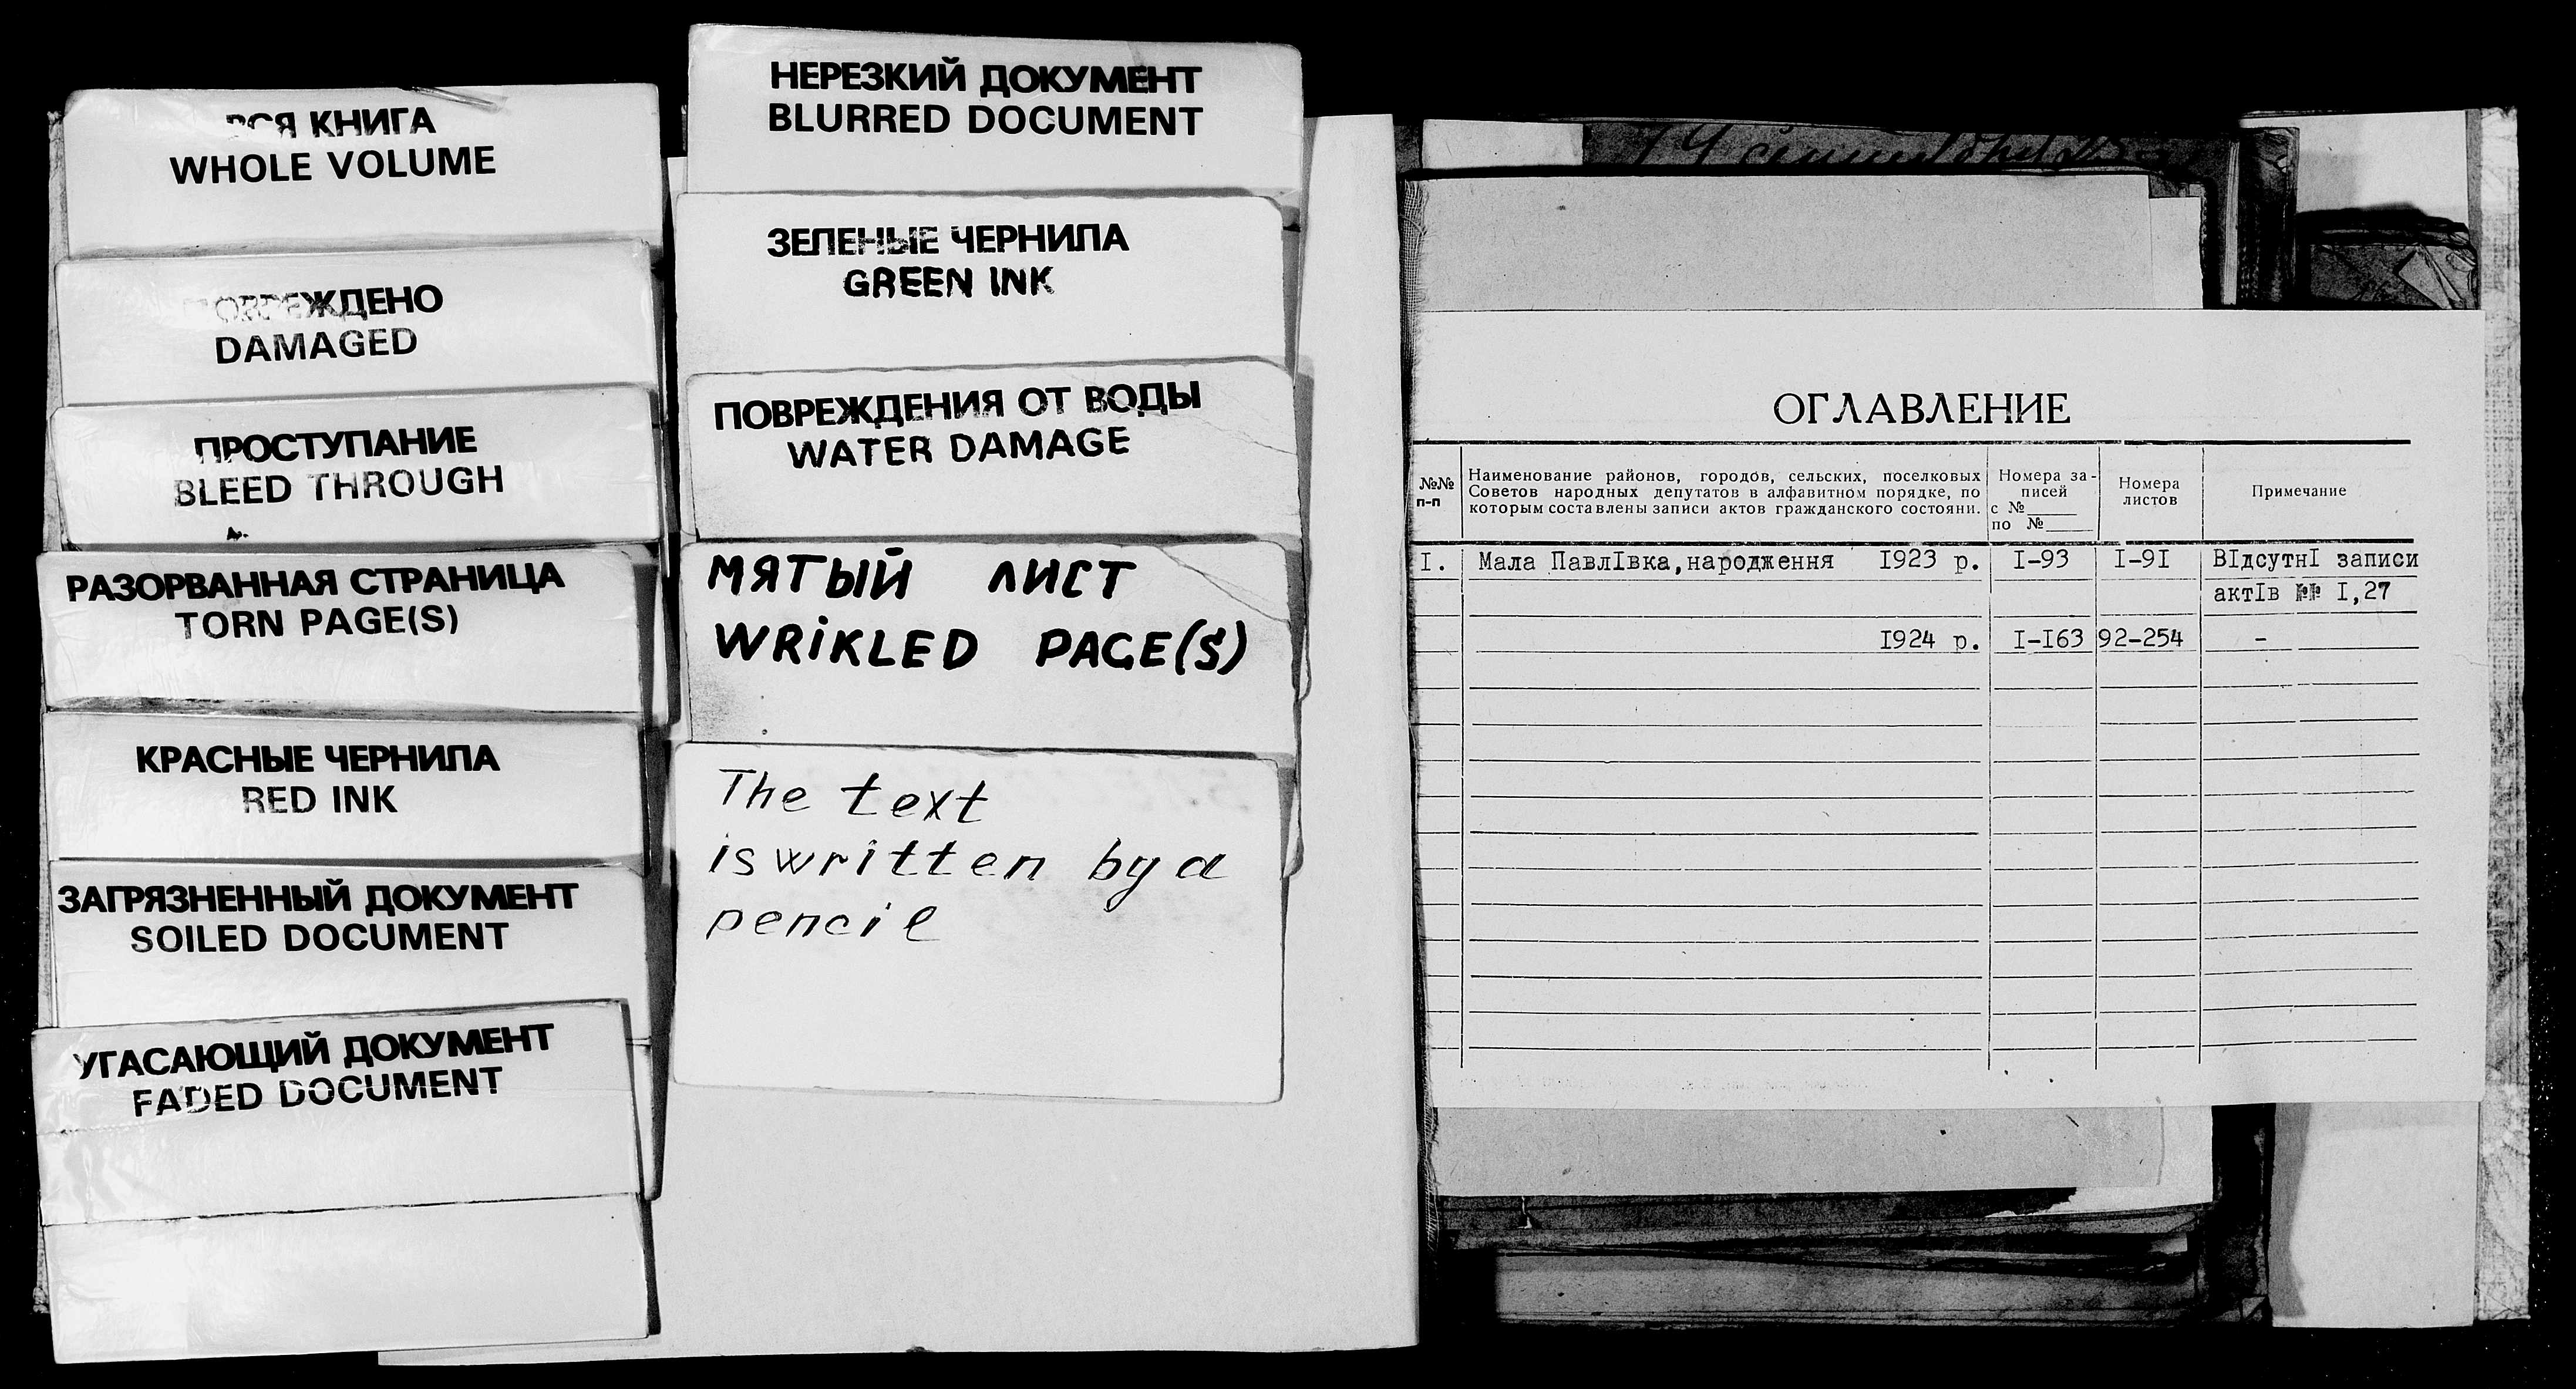 ВСЯ КНИГА
WHOLE VOLUME
ПОВРЕЖДЕНО
DAMAGED
ПРОСТУПАНИЕ
BLEED THROUGH
РАЗОРВАННАЯ СТРАНИЦА
TORN PAGE(S)
КРАСНЫЕ ЧЕРНИЛА
RED INK
ЗАГРЯЗНЕННЫЙ ДОКУМЕНТ
SOILED DOCUMENT
УГАСАЮЩИЙ ДОКУМЕНТ
FADED DOCUMENT
НЕРЕЗКИЙ ДОКУМЕНТ
BLURRED DOCUMENT
ЗЕЛЕНЫЕ ЧЕРНИЛА
GREEN INK
ПОВРЕЖДЕНИЯ ОТ ВОДЫ
WATER DAMAGE
МЯТЫЙ ЛИСТ
WRiKLED PAGE(S)
The text
is written by a
pencil
ОГЛАВЛЕНИЕ
№№
п-п
Наименование районов, городов, сельских, поселковых
Советов народных депутатов в алфавитном порядке, по
которым составлены записи актов гражданского состояни.
Номера за-
писей
с №____
по №____
Номера
листов
Примечание
I. Мала ПавлIвка, народження 1923 р. I-93 I-9I ВIдсутнI записи
актIв №№ I,27
I924 р. I-I63 92-254 -